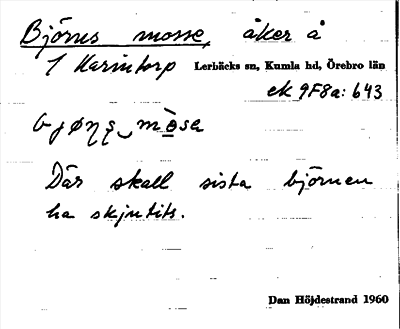 Björns mosse, åker å
1 Karintorp Lerbäcks sn, Kumla hd, Örebro län
ek 9F8a: 643
Där skall sista björnen
ha skjutits.
Dan Höjdestrand 1960